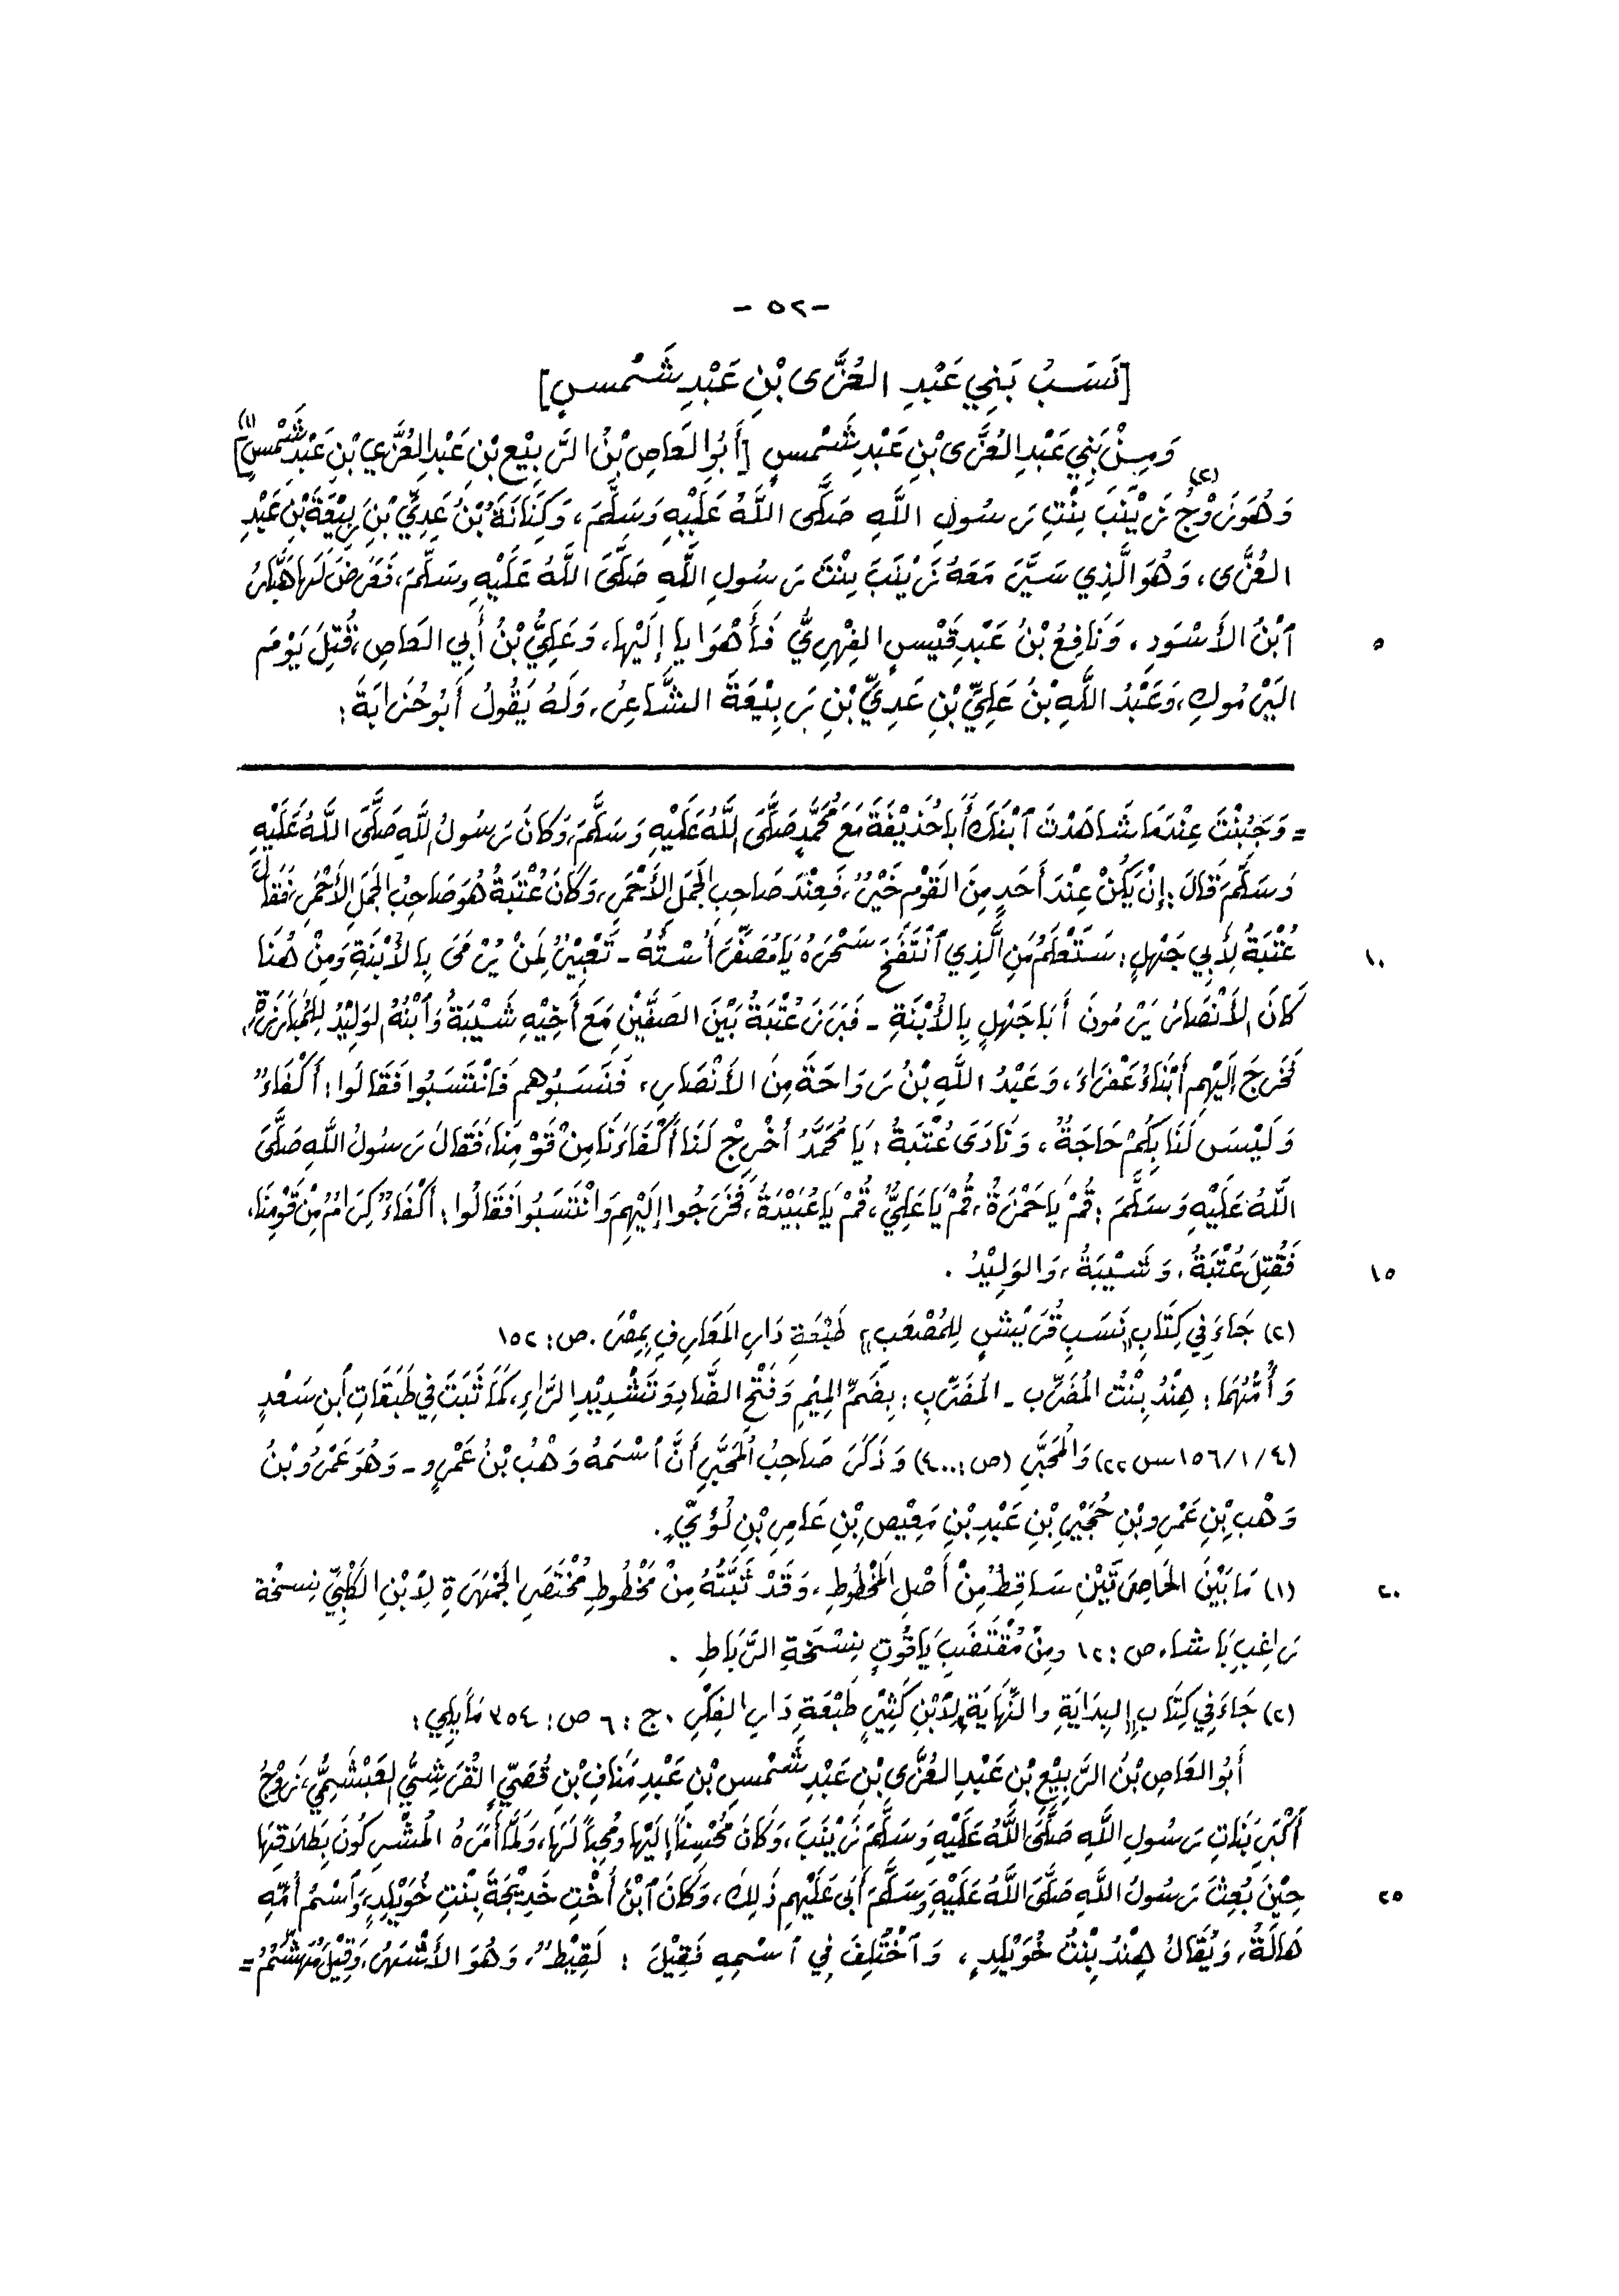 - ٥٢ -
[نَسَبُ بَنِي عَبْدِ العُزَّى بْنِ عَبْدِ شَمْسٍ]
وَمِنْ بَنِي عَبْدِ العُزَّى بْنِ عَبْدِ شَمْسٍ [أَبُو العَاصِ بْنُ الرَّبِيْعِ بْنِ عَبْدِ العُزَّي بْنِ عَبْدِ شَمْسٍ](١)
وَهُوَ زَوْجُ(٢) زَيْنَبَ بِنْتِ رَسُولِ اللَّهِ صَلَّى اللَّهُ عَلَيْهِ وَسَلَّمَ، وَكِنَانَةُ بْنُ عَدِيِّ بْنِ رَبِيْعَةَ بْنِ عَبْدِ
العُزَّى، وَهُوَ الَّذِي سَيَّرَ مَعَهُ زَيْنَبَ بِنْتَ رَسُولِ اللَّهِ صَلَّىَ اللَّهُ عَلَيْهِ وسَلَّمَ، فَعَرَضَ لَهَا هَبَّارُ
٥ ٱبْنُ الأَسْوَدِ، وَنَافِعُ بْنُ عَبْدِ قَيْسٍ الفِهْرِيُّ فَأَهْوَايا إِلَيْها، وَعَلِيُّ بْنُ أَبِي العَاصِ، قُتِلَ يَوْمَ
اليَرْمُوكِ، وَعَبْدُ اللَّهِ بْنُ عَلِيِّ بْنِ عَدِيِّ بْنِ رَبِيْعَةَ الشَّاعِرُ، وَلَهُ يَقُولُ أَبُو حُزَابَةَ:
= وَجَبُنْتَ عِنْدَمَا شَاهَدْتَ ٱبْنَكَ أَبَا حُذَيْفَةَ مَعَ مُحَمَّدٍ صَلَّىَ اللَّهُ عَلَيْهِ وَسَلَّمَ، وَكَانَ رَسُولُ اللَّهِ صَلَّىَ اللَّهُ عَلَيْهِ
وَسَلَّمَ قَالَ: إِنْ يَكُنْ عِنْدَ أَحَدٍ مِنَ القَوْمِ خَيْرٌ، فَعِنْدَ صَاحِبِ الجَمَلِ الأَحْمَرِ، وَكَانَ عُتْبَةُ هُوَ صَاحِبُ الجَمَلِ الأَحْمَرِ، فَقَالَ
١٠ عُتْبَةُ لِأَبِي جَهْلٍ: سَتَعْلَمُ مَنِ الَّذِي ٱنْتَفَخَ سَحْرَهُ يَا مُصَفِّرَ أُسْتَهُ - تَعْبِيْرٌ لِمَنْ يُرْمَىَ بِالأُبْنَةِ وَمِنْ هُنَا
كَانَ الأَنْصَارُ يَرْمُونَ أَبَا جَهْلٍ بِالأُبْنَةِ - فَبَرَزَ عُتْبَةُ بَيْنَ الصَفَّيْنِ مَعَ أَخِيْهِ شَيْبَةُ وَٱبْنُهُ الوَلِيْدُ لِلْمُبَارَزَةِ،
فَخَرَجَ إِلَيْهِم أَبْنَاءُ عَفْرَاءَ، وَعَبْدُ اللَّهِ بْنُ رَوَاحَةَ مِنَ الأَنْصَارِ، فَنَسَبُوهم فَانْتَسَبُوا فَقَالُوا: أَكْفَاءٌ
وَلَيْسَ لَنَا بِكُمْ حَاجَةٌ، وَنَادَىَ عُتْبَةُ: يَا مُحَمَّدُ أَخْرِجْ لَنَا أَكْفَاءَنَا مِنْ قَوْمِنَا، فَقَالَ رَسُولُ اللَّهِ صَلَّىَ
اللَّهُ عَلَيْهِ وَسَلَّمَ: قُمْ يَا حَمْزَةُ، قُمْ يَا عَلِيُّ، قُمْ يَا عُبَيْدَةُ، فَخَرَجُوا إِلَيْهِم وَانْتَسَبُوا فَقَالُوا: أَكْفَاءٌ كِرَامٌ مِنْ قَوْمِنَا،
١٥ فَقُتِلَ عُتْبَةُ، وَشَيْبَةُ، وَالوَلِيْدُ.
(٢) جَاءَ فِي كِتَابِ «نَسَبِ قُرَيْشٍ لِلمُصْعَبِ» طَبْعَةِ دَارِ المَعَارِفِ بِمِصْرَ. ص: ١٥٢
وَأُمُّهُمَا: هِنْدُ بِنْتُ المُضَرِّب - المُضَرِّبِ: بِضَمِّ المِيْمِ وَفَتْحِ الضَّادِ وَتَشْدِيْدِ الرَّاءِ، كَمَا ثَبَتَ فِي طَبَقَاتِ ٱبْنِ سَعْدٍ
(٤/١/١٥٦ س ٢٢) وَالْمُحَبَّرِ (ص: ٤٠٠) وَذَكَرَ صَاحِبُ المُحَبَّرِ أَنَّ ٱسْمَهُ وَهْبُ بْنُ عَمْرٍو - وَهُوَ عَمْرُو بْنُ
وَهْبِ بْنِ عَمْرِو بْنِ حُجَيْرِ بْنِ عَبْدِ بْنِ مَعِيْصِ بْنِ عَامِرِ بْنِ لُؤَيٍّ.
٢٠ (١) مَا بَيْنَ الحَاصِرَتَيْنِ سَاقِطٌ مِنْ أَصْلِ المَخْطُوطِ، وَقَدْ ثَبَّتُّهُ مِنْ مَخْطُوطِ مُخْتَصَرِ الجَمْهَرَةِ لِابْنِ الكَلْبِيِّ نِسخَة
رَاغِبِ بَاشا، ص: ١٢ ومِنْ مُقْتَضَبِ يَاقُوتٍ نِسْخَةِ الرَّبَاطِ.
(٢) جَاءَ فِي كِتَابِ «البِدَايَةِ والنِّهَايَةِ» لِابْنِ كَثِيْرٍ طَبْعَةِ دَارِ الفِكْرِ. ج: ٦ ص: ٣٥٤ مَا يَلِي:
أَبُو العَاصِ بْنُ الرَّبِيْعِ بْنِ عَبْدِ العُزَّى بْنِ عَبْدِ شَمْسِ بْنِ عَبْدِ مَنَافِ بْنِ قُصَيٍّ القُرَشِيُّ العَبْشَمِيُّ، زَوْجُ
أَكْبَرِ بَنَاتِ رَسُولِ اللَّهِ صَلَّىَ اللَّهُ عَلَيْهِ وَسَلَّمَ زَيْنَبَ، وَكَانَ مُحْسِناً إِلَيْها ومُحِباً لَهَا، وَلَمَّا أَمَرَهُ المُشْرِكُونَ بِطَلَاقِهَا
٢٥ حِيْنَ بُعِثَ رَسُولُ اللَّهِ صَلَّىَ اللَّهُ عَلَيْهِ وَسَلَّمَ أَبَى عَلَيْهِم ذَلِكَ، وَكَانَ ٱبْنَ أُخْتِ خَدِيْجَةَ بِنْتِ خُوَيْلِدٍ، وَٱسْمُ أُمِّهِ
هَالَةُ، وَيُقَالُ هِنْدُ بِنْتُ خُوَيْلِدٍ، وَٱخْتُلِفَ فِي ٱسْمِهِ فَقِيْلَ: لَقِيْطٌ، وَهُوَ الأَشْهَرُ، وَقِيْلَ مُهَشِّمٌ =